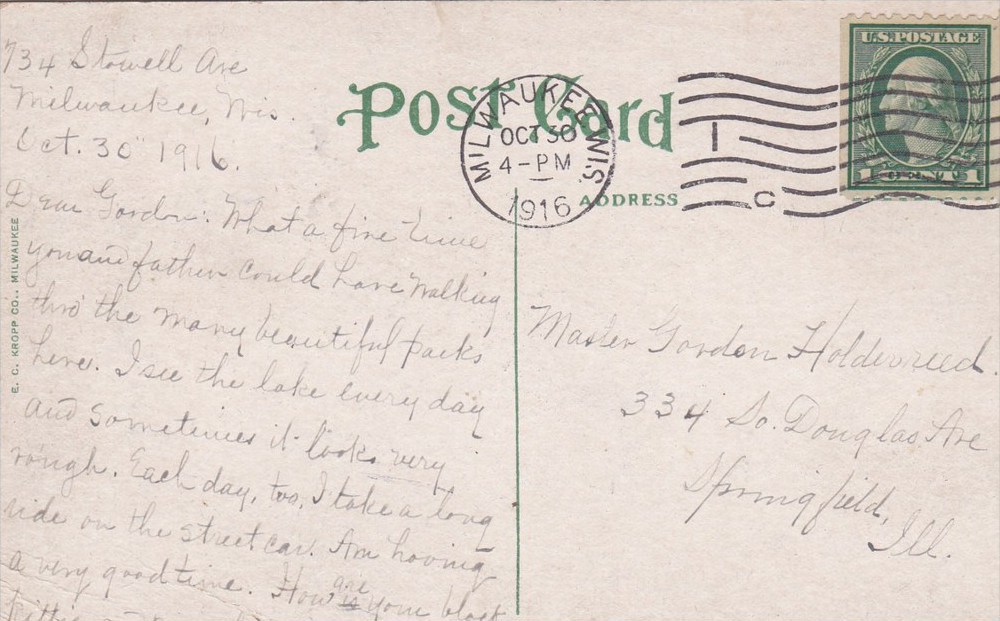 734 Stowell Ave
Milwaukee, Wis.
Oct. 30" 1916.
Dear Gordon: What a fine time
you and father could have walking
thro' the many beautiful parks
here. I see the lake every day
and sometimes it looks very
rough. Each day, too, I take a long
ride on the street car. Am having
a very good time. How are your black
E. C. KROPP CO., MILWAUKEE
POST CARD
ADDRESS
MILWAUKEE, WIS.
OCT 30
4-PM
1916
1
C
U.S. POSTAGE
1 1
Master Gordon Holdenreed.
334 So. Douglas Ave
Springfield,
Ill.